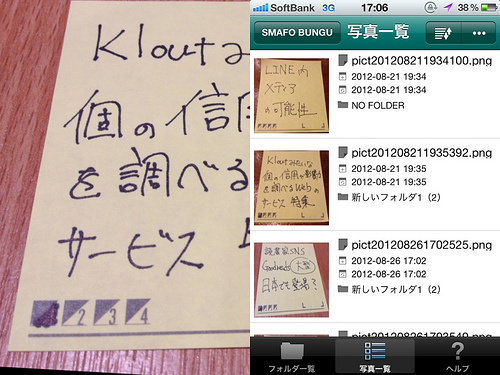 Kloutみ
個の信用
を調べる
サービス
2 3 4
SoftBank 3G 17:06 38%
SMAFO BUNGU 写真一覧
LINE内
メディア
の可能性
pict201208211934100.png
2012-08-21 19:34
2012-08-21 19:34
NO FOLDER
Kloutみたいな
個の信用や影響力
を調べるWebの
サービス 特集
pict201208211935392.png
2012-08-21 19:35
2012-08-21 19:35
新しいフォルダ1（2）
読書家SNS
Goodreads
日本でも登場？
pict201208261702525.png
2012-08-26 17:02
2012-08-26 17:02
新しいフォルダ1（2）
フォルダ一覧 写真一覧 ヘルプ